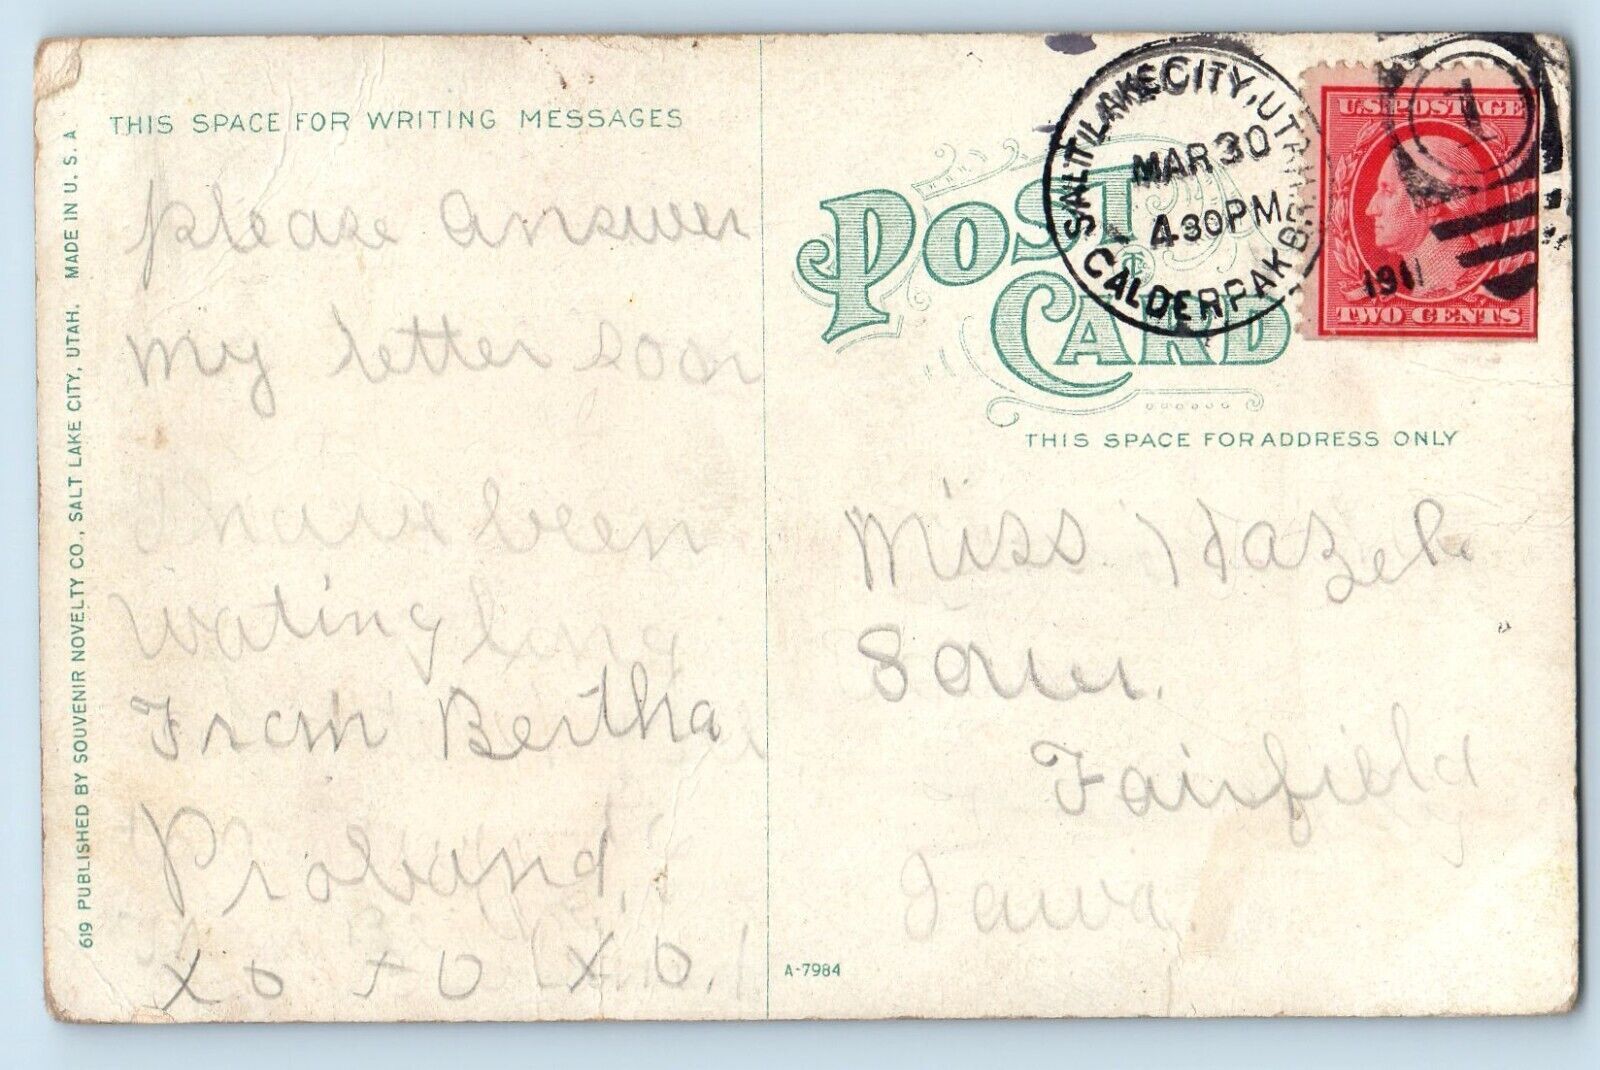 THIS SPACE FOR WRITING MESSAGES
please answer
my letter soon
I have been
wating long
From Bertha
Proband.
xo xo xo.
619 PUBLISHED BY SOUVENIR NOVELTY CO., SALT LAKE CITY, UTAH. MADE IN U. S. A
POST CARD
THIS SPACE FOR ADDRESS ONLY
SALT LAKE CITY, UTAH
MAR 30
4 30 PM
1911
CALDER PARK BR.
U.S. POSTAGE
TWO CENTS
1
Miss Hazel
Fairfield
Iowa
A-7984